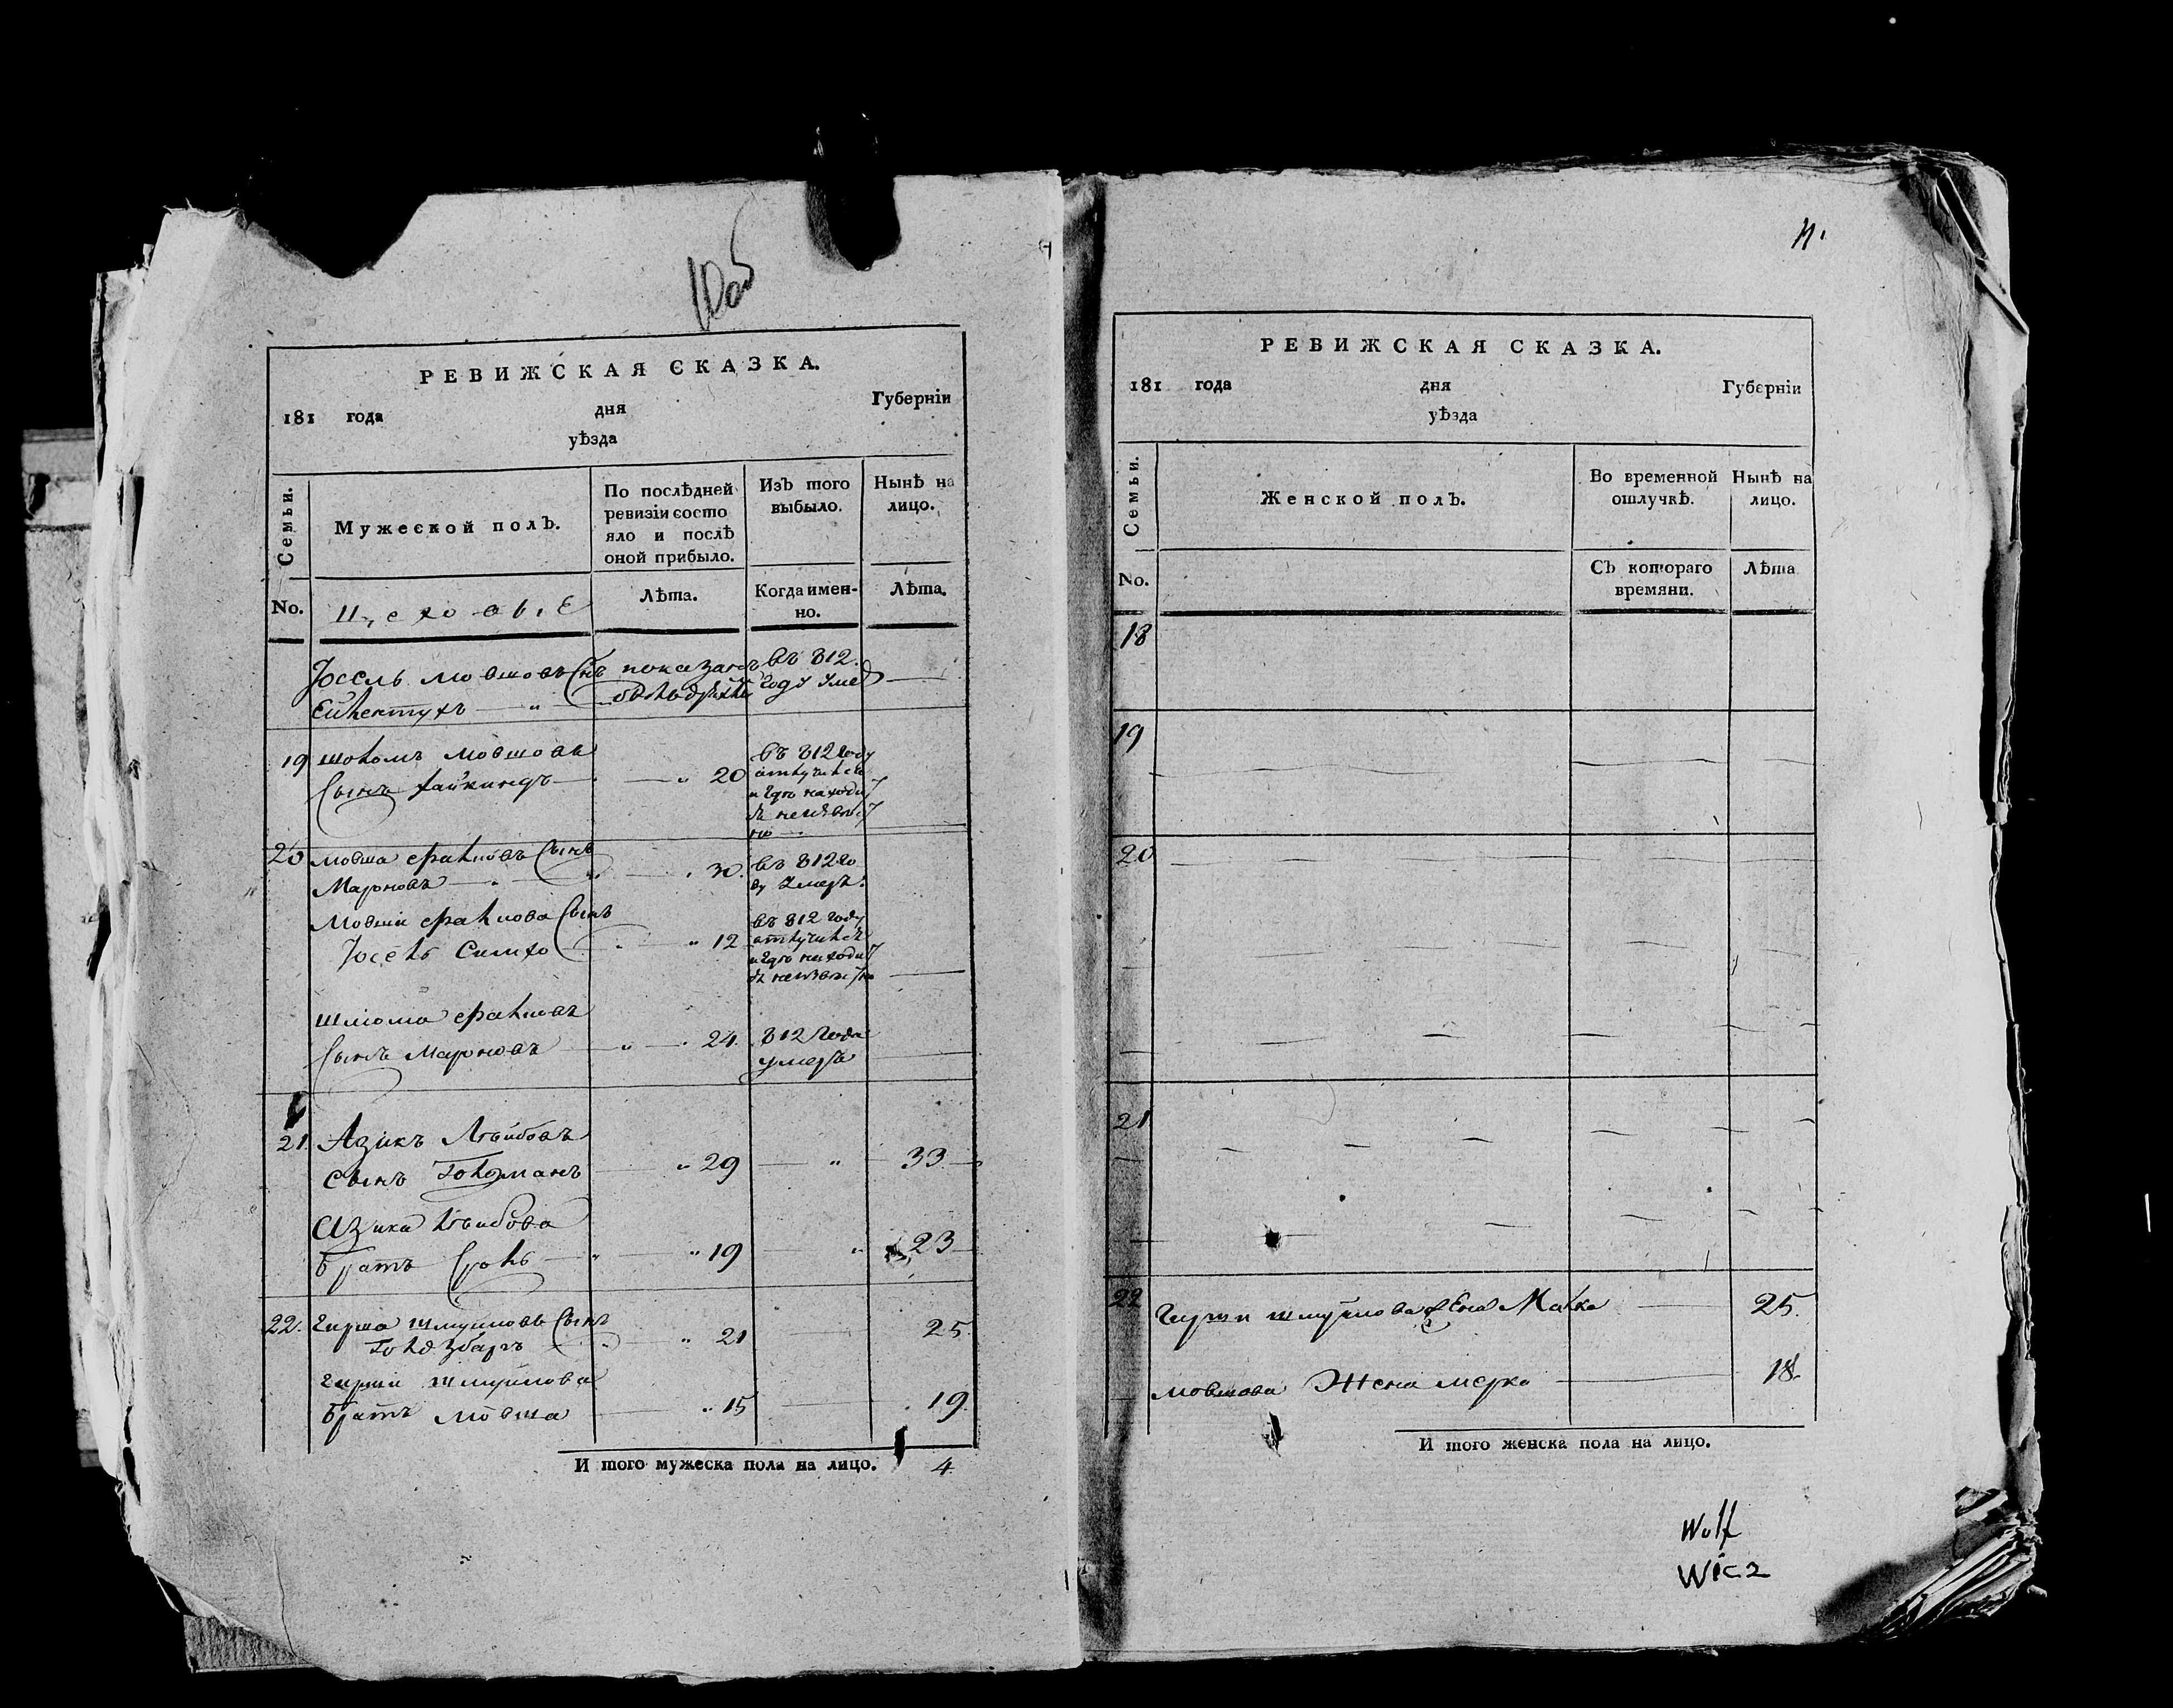 10об
РЕВИЖСКАЯ СКАЗКА.
181 года дня Губерніи
уѣзда
Семьи.
Мужеской полъ.
По послѣдней
ревизіи состо
яло и послѣ
оной прибыло.
Изъ того
выбыло.
Нынѣ на
лицо.
No.
Цеховые
Лѣта.
Когда имен-
но.
Лѣта.
Іосель Мовшовъ Снъ показанъ въ 812
году умер
19 Шоломъ Мовшовъ
Сынъ Хайкиндъ 20
въ 812 году
отлучился
и где находи
20 Мовша Фалковъ Сынъ
Марковъ 30.
въ 812 го
ду умеръ.
Мовши Фалкова Сынъ
Іосель Симхо 12
въ 812 году
отлучился
и где находи
Шліома Фалковъ
Сынъ Марковъ 24.
812 года
умеръ
21. Азикъ Лейбовъ
Сынъ Голдманъ 29 33
Азика Лейбова
братъ Сроль 19 23
22. Гирша Шмуйловъ Сынъ
Голдзбаргъ 21 25.
Гирши Шмуйлова
братъ Мовша 15 19.
И того мужеска пола на лицо. 4.
11.
РЕВИЖСКАЯ СКАЗКА.
181 года дня Губерніи
уѣзда
Семьи.
Женской полъ.
Во временной
отлучкѣ.
Нынѣ на
лицо.
No.
Съ котораго
времяни.
Лѣта
18
19
20
21
22 Гирши Шмуйлова жена Малка 25.
Мовшова Жена Мерка 18.
И того женска пола на лицо.
Wulf
Wicz